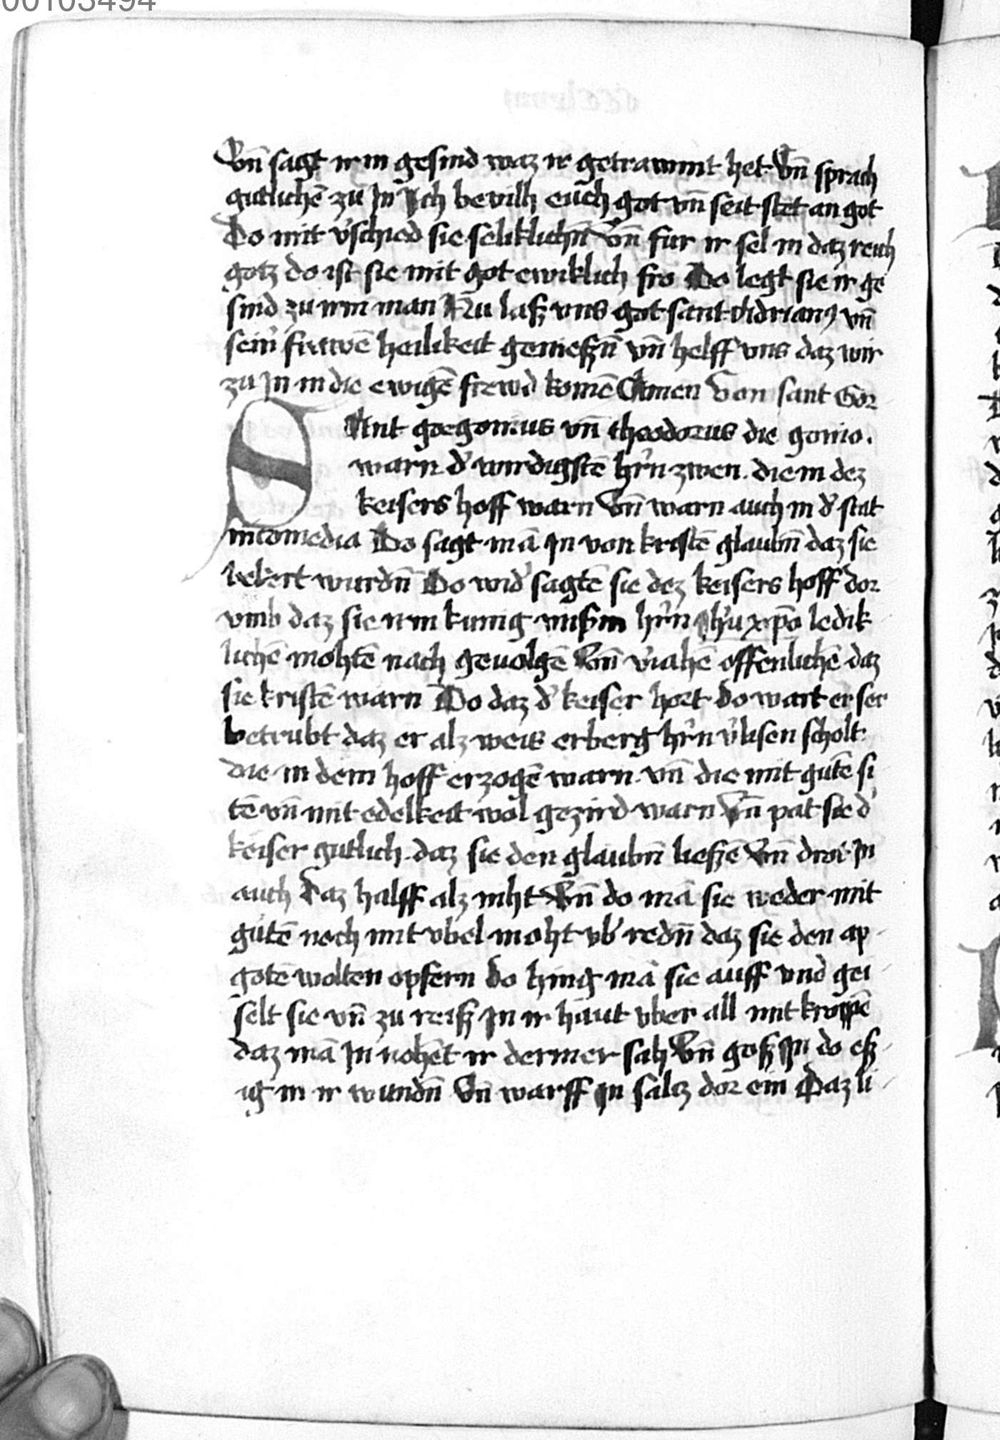 00103494
Vn̄ sagt irm gesind waz ir getrawmt het Vn̄ sprach
gutlichē zu Jn Jch bevilh euch got vn̄ seit stet an got
Do mit v'schied sie seliklichn̄ Vn̄ fur ir sel in daz reich
gotz do ist sie mit got ewiklich fro Do legt sie ir ge
sind zu irm man Nu laß vns got sant Adrianꝰ vn̄
sein' frawē heilikeit genieſſn̄ vn̄ helff vns daz wir
zu Jn in die ewigē frewd komē Amen Von sant Gor
SAnt gorgonius vn̄ theodorus die gonio.
warn d' wirdigstē hr̄n zwen. die in dez
keisers hoff warn Vn̄ warn auch in d' stat
nicomedia Do sagt mā Jn von kristē glaubn̄ daz sie
bekert wurdn̄ Do wid' sagtē sie dez keisers hoff dor
vmb daz sie irm kunig vnsm̄ hr̄n Jh'u xp̄o ledik
lichē mohtē nach gevolgē Vn̄ v'iahē offenlichē daz
sie kristē warn Do daz d' keiser hort do wart er ser
betrubt daz er alz weis erberg hr̄n v'lisen scholt
die in dem hoff erzogē warn vn̄ die mit gutē si
tē vn̄ mit edelkeit wol gezird warn Vn̄ pat sie d'
keiser gutlich daz sie den glaubn̄ lieſſē Vn̄ droi Jn
auch Daz halff alz niht Vn̄ do mā sie weder mit
gutē noch mit vbel moht vb' redn̄ daz sie den ap
gotē wolten opfern Do hing mā sie auff vnd gei
selt sie vn̄ zu reiß Jn ir haut vber all mit kroppē
daz mā Jn nohēt ir dermer sah Vn̄ goß Jn do eß
ig in ir wundn̄ Vn̄ warff Jn saltz dor ein Daz li